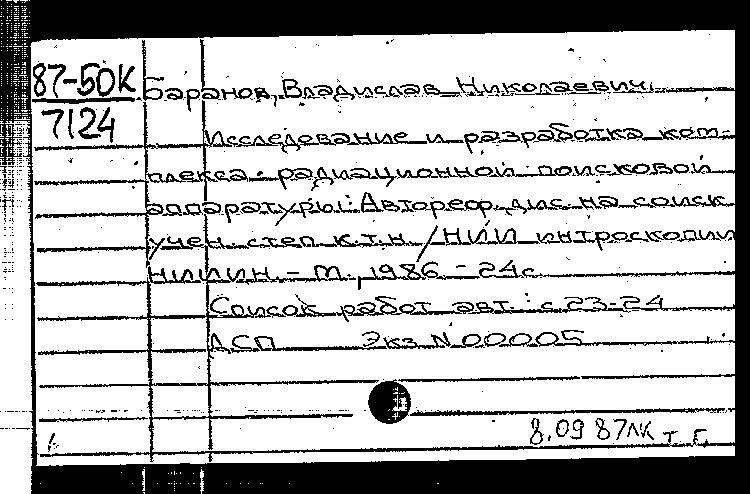 87-50К
7124
Баранов, Владислав Николаевич.
Исследование и разработка ком-
плекса радиационной поисковой
аппаратуры: Автореф. дис. на соиск
учен. степ к.т.н. / НИИ интроскопии
- М., 1986 - 24с.
Список работ авт.: с.23-24
АСП Экз N 00005
8.09 87 т